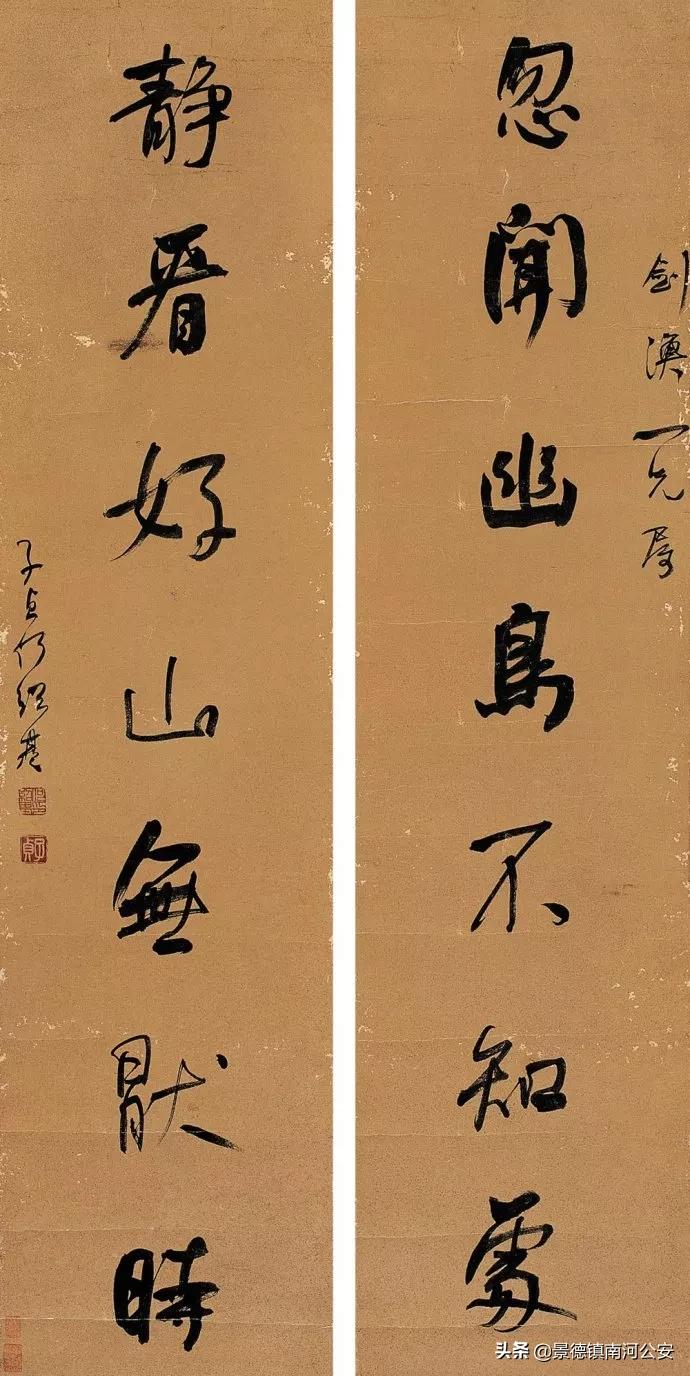 忽聞幽鳥不知處
劍潢一兄屬
静看好山無猒時
子貞何紹基
子貞
头条 @景德镇南河公安